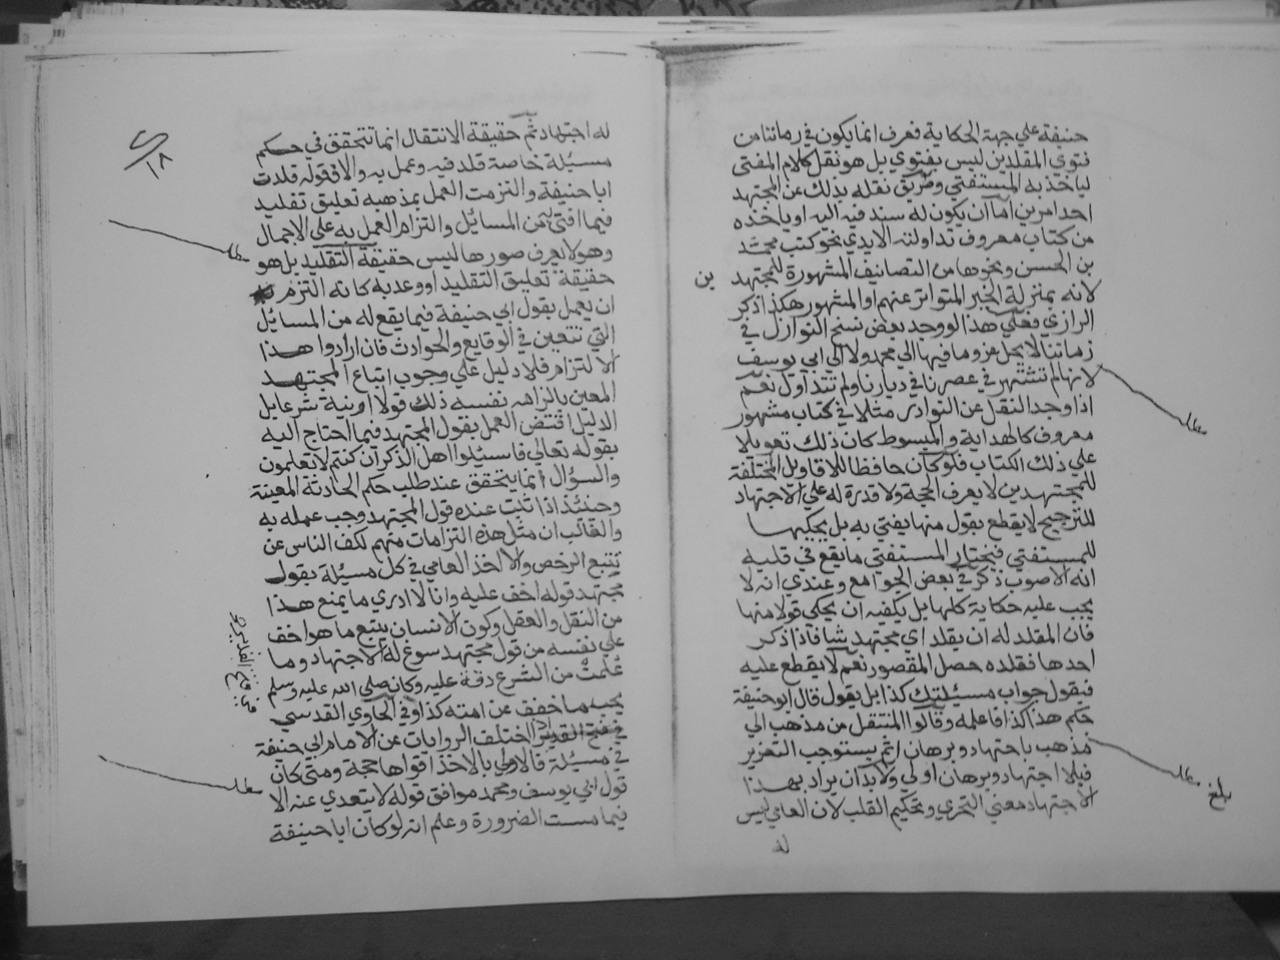 حنيفة علي جهة الحكاية فعرف انما يكون في زماننا من
فتوي المقلدين ليس بفتوي بل هو نقل كلام المفتي
لياخذ به المستفتي وطريق نقله بذلك عن المجتهد
احد امرين اما ان يكون له سند فيه اليه او ياخذه
من كتاب معروف تداولته الايدي نحو كتب محمد
بن الحسن ونحوها من التصانيف المشهورة للمجتهد
بن
لانه بمنزلة الخبر المتواتر عنهم او المشهور هكذا ذكر
الرازي فعلي هذا لو وجد بعض نسخ النوادر في
زماننا لا يحل عزو ما فيها الي محمد ولا الي ابي يوسف
لانها لم تشتهر في عصرنا في ديارنا ولم تتداول نعم
اذا وجد النقل عن النوادر مثلا في كتاب مشهور
معروف كالهداية والمبسوط كان ذلك تعويلا
علي ذلك الكتاب فلو كان حافظا للاقاويل المختلفة
للمجتهدين لا يعرف الحجة ولا قدرة له علي الاجتهاد
للترجيح لا يقطع بقول منها يفتي به بل يحكيها
للمستفتي فيختار المستفتي ما يقع في قلبه
انه الاصوب ذكر في بعض الجوامع وعندي انه لا
يجب عليه حكاية كلها بل يكفيه ان يحكي قولا منها
فان المقلد له ان يقلد اي مجتهد شا فاذا ذكر
احدها فقلده حصل المقصور نعم لا يقطع عليه
فيقول جواب مسئلتك كذا بل يقول قال ابو حنيفة
حكم هذا كذا فاعلمه وقالوا المنتقل من مذهب الي
مذهب باجتهاد وبرهان اثم يستوجب التعزير
فبلا اجتهاد وبرهان اولي ولابد ان يراد بهذا
الاجتهاد معني التحري وتحكيم القلب لان العامي ليس
له
مطلب
مطلب
بلغ
١٨
له اجتهاد ثم حقيقة الانتقال انما تتحقق في حكم
مسئلة خاصة قلد فيه وعمل به والا فقوله قلدت
ابا حنيفة والتزمت العمل بمذهبه تعليق تقليد
فيما افتي من المسائل والتزام العمل به علي الاجمال
وهو لا يعرف صورها ليس حقيقة التقليد بل هو
حقيقة تعليق التقليد او وعد به كانه التزم
ان يعمل بقول ابي حنيفة فيما يقع له من المسائل
التي تتعين في الوقايع والحوادث فان ارادوا هذا
الالتزام فلا دليل علي وجوب اتباع المجتهد
المعين بالزامه نفسه ذلك قولا او نية شرعا بل
الدليل اقتض العمل بقول المجتهد فيما احتاج اليه
بقوله تعالي فاسئلوا اهل الذكر ان كنتم لا تعلمون
والسؤال انما يتحقق عند طلب حكم الحادثة المعينة
وحينئذ اذا ثبت عنده قول المجتهد وجب عمله به
والغالب ان مثل هذه التزامات منهم لكف الناس عن
تتبع الرخص والا اخذ العامي في كل مسئلة بقول
مجتهد قوله اخف عليه وانا لا ادري ما يمنع هذا
من النقل والعقل وكون الانسان يتبع ما هو اخف
علي نفسه من قول مجتهد سوغ له الاجتهاد وما
علمت من الشرع ذمه عليه وكان صلي الله عليه وسلم
يحب ما خفف عن امته كذا وفي الحاوي القدسي
اذا اختلف الروايات عن الامام ابي حنيفة
في مسئلة فالاولي بالاخذ اقواها حجة ومتي كان
قول ابي يوسف ومحمد موافق قوله لا يتعدي عنه الا
فيما مست الضرورة وعلم انه لو كان ابا حنيفة
مطلب
من فتح القدير
مطلب